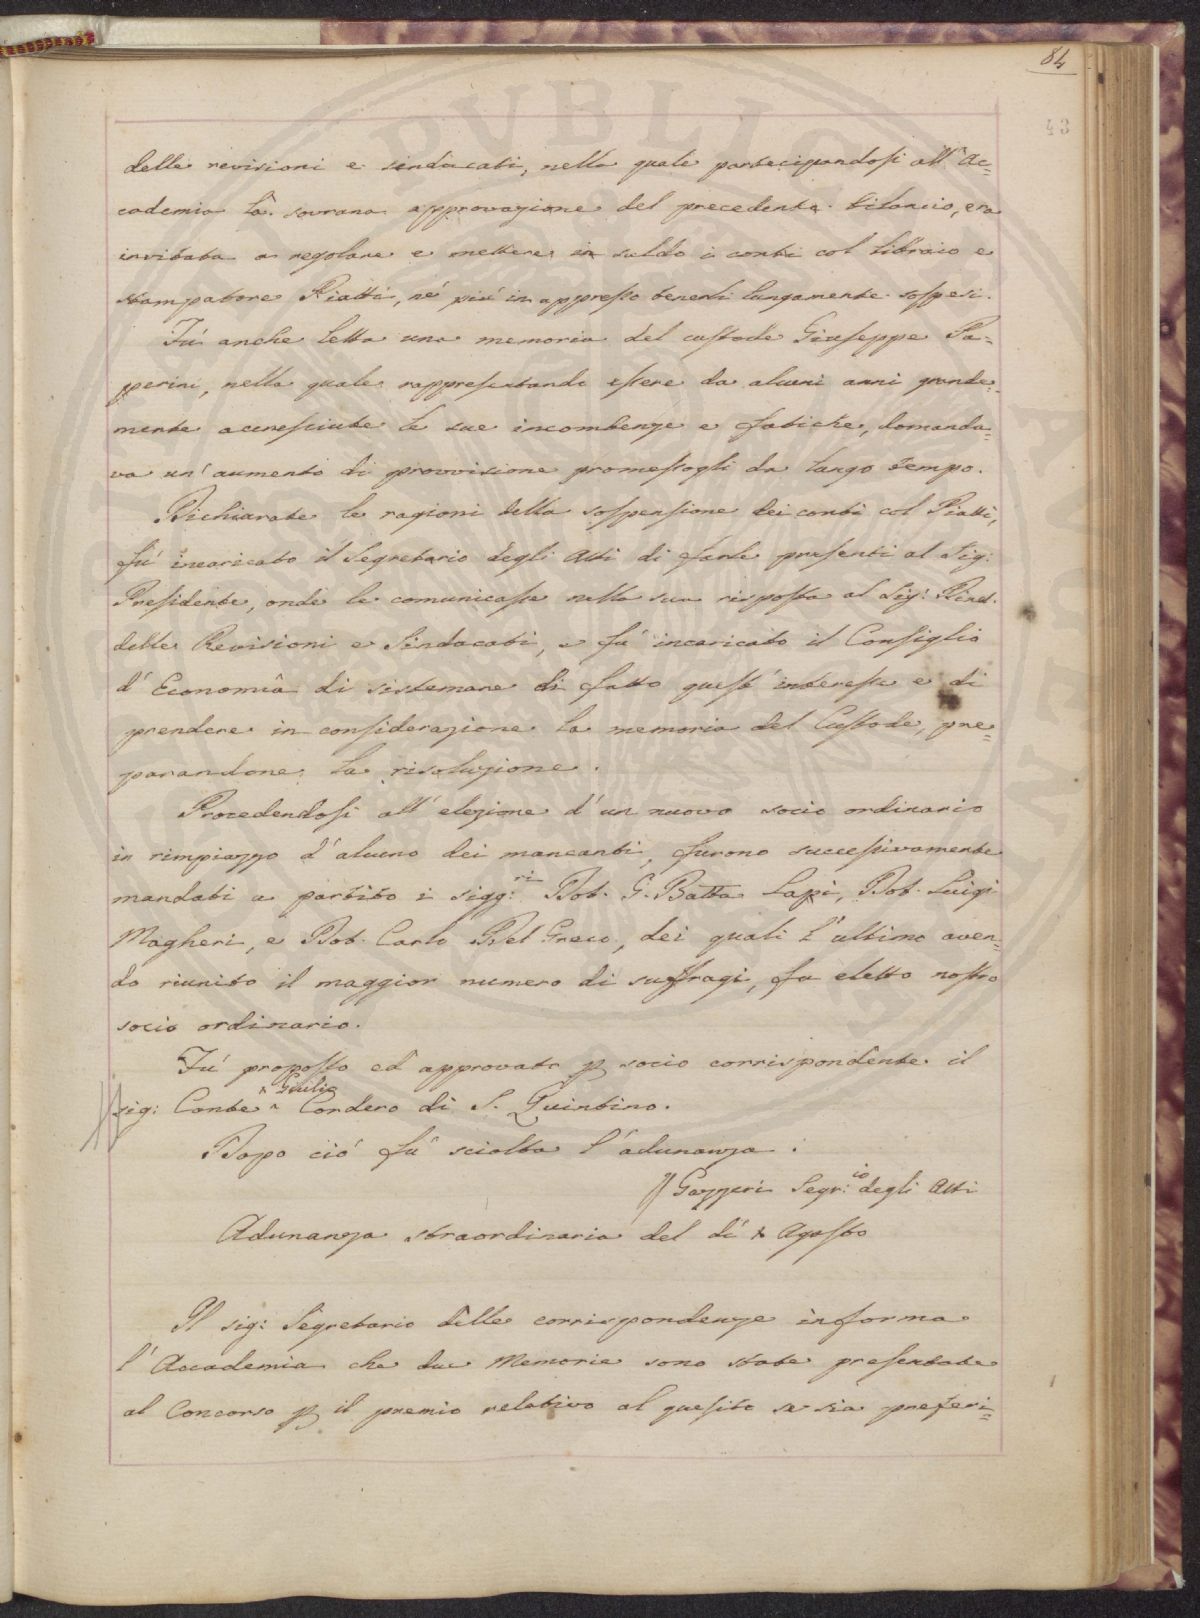 84
43
delle revisioni e sindacati, nella quale partecipandosi all'Ac=
cademia la sovrana approvazione del precedente bilancio, era
invitata a regolare e mettere in saldo i conti col libraio e
stampatore Piatti, né più in appresso tenerli lungamente sospesi.
Fú anche letta una memoria del custode Giuseppe Pa=
perini, nella quale rappresentando essere da alcuni anni grande=
mente accresciute le sue incombenze e fatiche, domanda=
va un'aumento di provvisione promessogli da lungo tempo.
Dichiarate le ragioni della sospensione dei conti col Piatti,
fú incaricato il Segretario degli Atti di farle presenti al Sig:
Presidente, onde le comunicasse nella sua risposta al Sig: Diret.
delle Revisioni e Sindacati, e fú incaricato il Consiglio
d'Economia di sistemare di fatto quest'interesse e di
prendere in considerazione la memoria del Custode, pre=
parandone la risoluzione.
Procedendosi all'elezione d'un nuovo socio ordinario
in rimpiazzo d'alcuno dei mancanti, furono successivamente
mandati a partito i sigg:ri Dot. G. Batta Lapi, Dot. Luigi
Magheri, e Dot. Carlo Del Greco, dei quali l'ultimo aven=
do riunito il maggior numero di suffragi, fu eletto nostro
socio ordinario.
Fú proposto ed approvato p socio corrispondente il
sig: Conte Giulio Cordero di S. Quintino.
Dopo ció fú sciolta l'adunanza.
Gazzeri Segr:io degli Atti
Adunanza straordinaria del dí Agosto
Il sig: Segretario delle corrispondenze informa
l'Accademia che due Memorie sono state presentate
al Concorso p il premio relativo al quesito se sia preferi=